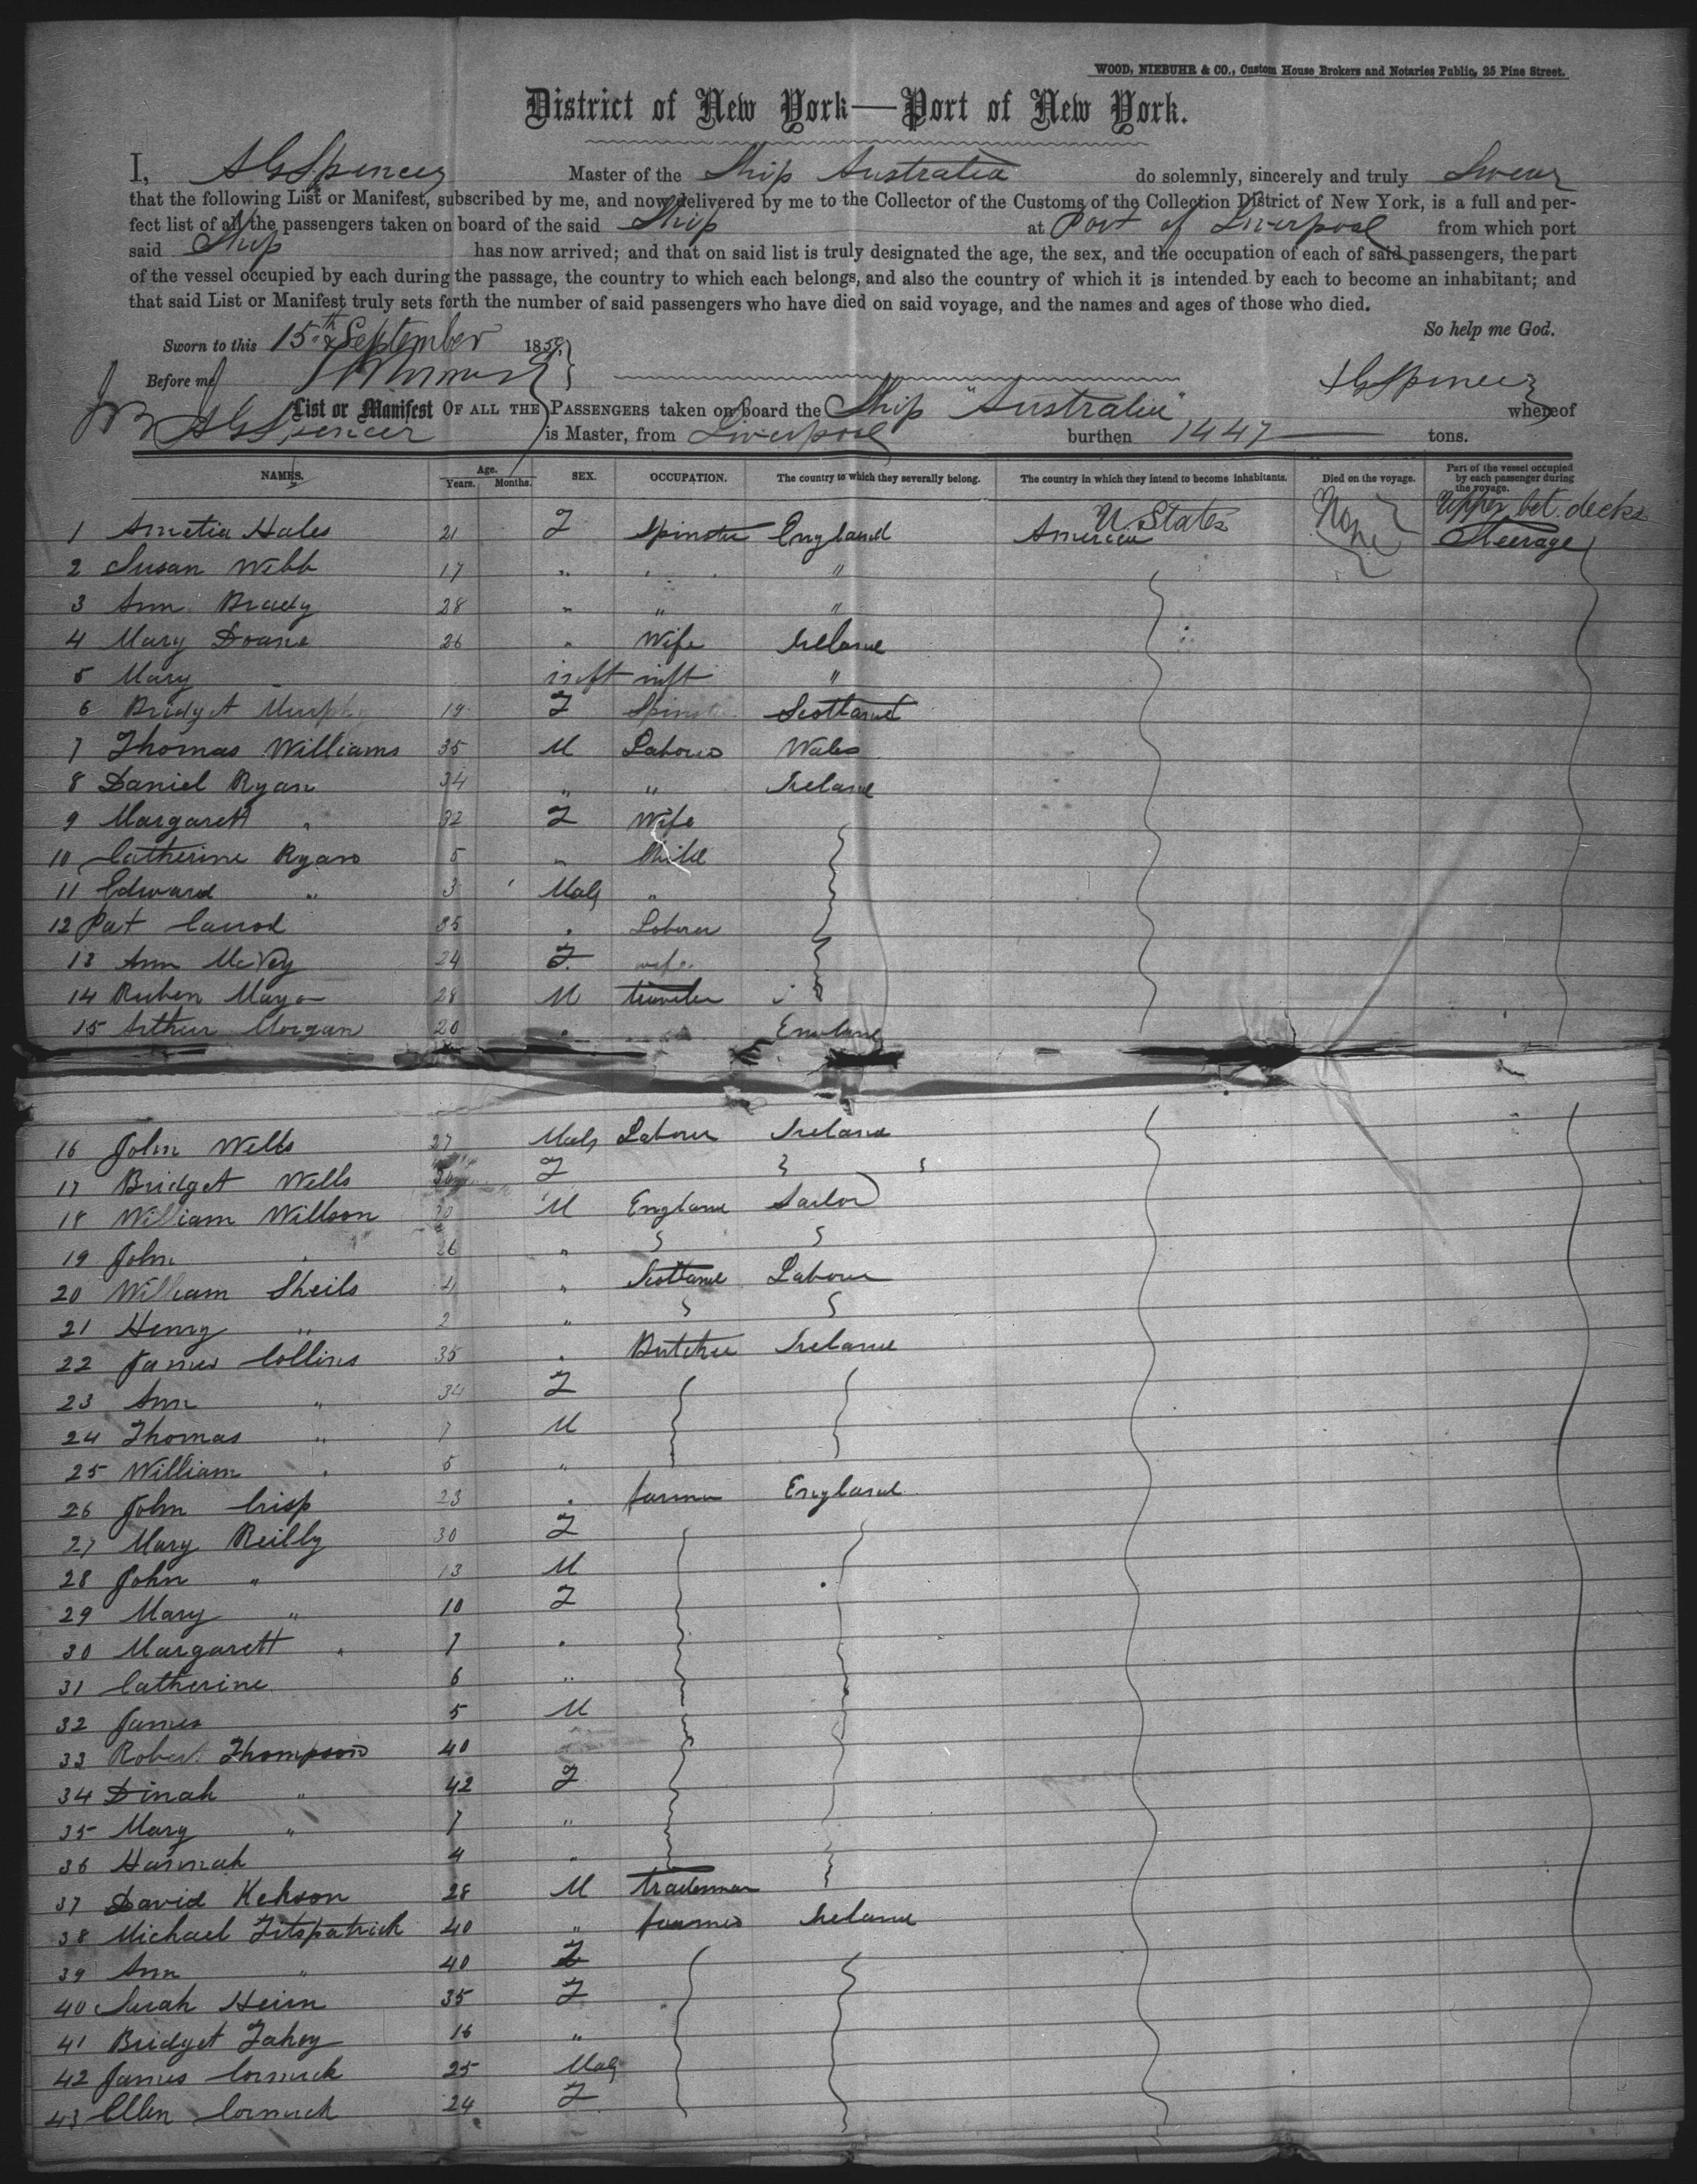 WOOD, NIEBUHR & CO., Custom House Brokers and Notaries Public, 25 Pine Street.
District of New York—Port of New York.
I, A G Spencer Master of the Ship Australia do solemnly, sincerely and truly Swear
that the following List or Manifest, subscribed by me, and now delivered by me to the Collector of the Customs of the Collection District of New York, is a full and per-
fect list of all the passengers taken on board of the said Ship at Port of Liverpool from which port
said Ship has now arrived; and that on said list is truly designated the age, the sex, and the occupation of each of said passengers, the part
of the vessel occupied by each during the passage, the country to which each belongs, and also the country of which it is intended by each to become an inhabitant; and
that said List or Manifest truly sets forth the number of said passengers who have died on said voyage, and the names and ages of those who died.
So help me God.
Sworn to this 15th September 1859
Before me A G Spencer
List or Manifest OF ALL THE PASSENGERS taken on board the Ship "Australia" whereof
A G Spencer is Master, from Liverpool burthen 1447 tons.
NAMES. Age. Years. Months. SEX. OCCUPATION. The country to which they severally belong. The country in which they intend to become inhabitants. Died on the voyage. Part of the vessel occupied by each passenger during the voyage.
U. States None Upper bet. decks
1 Ametia Hales 21 F Spinster England America Steerage
2 Susan Webb 17 " " "
3 Ann Brady 28 " " "
4 Mary Doane 26 " Wife Ireland
5 Mary inft inft "
6 Bridget Murphy 19 F Spinst Scotland
7 Thomas Williams 35 M Labourer Wales
8 Daniel Ryan 34 " " Ireland
9 Margarett " 32 F Wife
10 Catherine Ryan 5 " Child
11 Edward " 3 Male "
12 Pat Carrol 35 " Laborer
13 Ann McVey 24 F. wife
14 Ruben Mayo 28 M traveler
15 Arthur Morgan 20 " England
16 John Wells 27 Male Labourer Ireland
17 Bridget Wells 30 F
18 William Willson 20 M England Sailor
19 John " 26 "
20 William Sheils 4 " Scotland Labourer
21 Henry " 2 "
22 James Collins 35 " Butcher Ireland
23 Ann " 34 F
24 Thomas " 7 M
25 William " 5 "
26 John Crisp 23 " farmer England
27 Mary Reilly 30 F
28 John " 13 M
29 Mary " 10 F
30 Margarett " 7 "
31 Catherine 6 "
32 James 5 M
33 Robert Thompson 40
34 Dinah " 42 F
35 Mary " 7 "
36 Hannah 4 "
37 David Kehson 28 M tradesman
38 Michael Fitspatrick 40 " farmer Ireland
39 Ann " 40 F
40 Sarah Heirn 35 F
41 Bridget Fahey 16 "
42 James Cormick 25 Male
43 Ellen Cormick 24 F